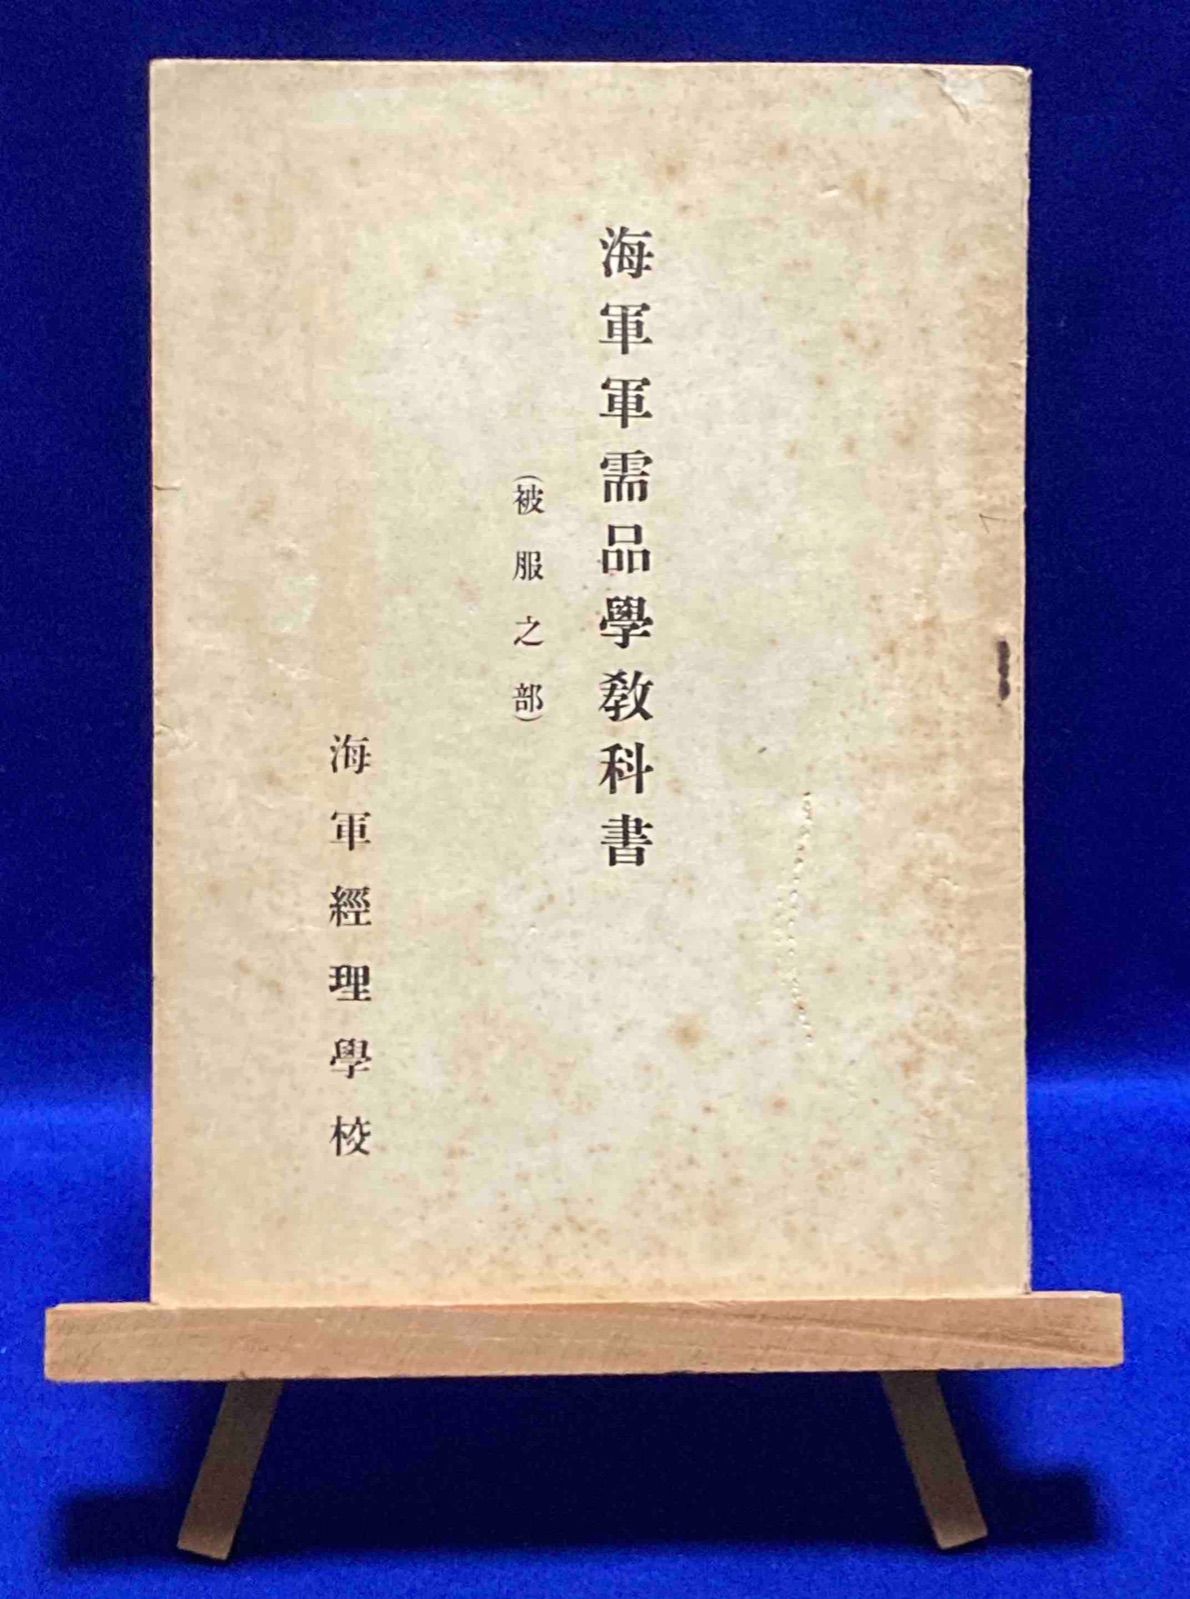 海軍軍需品學教科書
(被服之部)
海軍經理學校